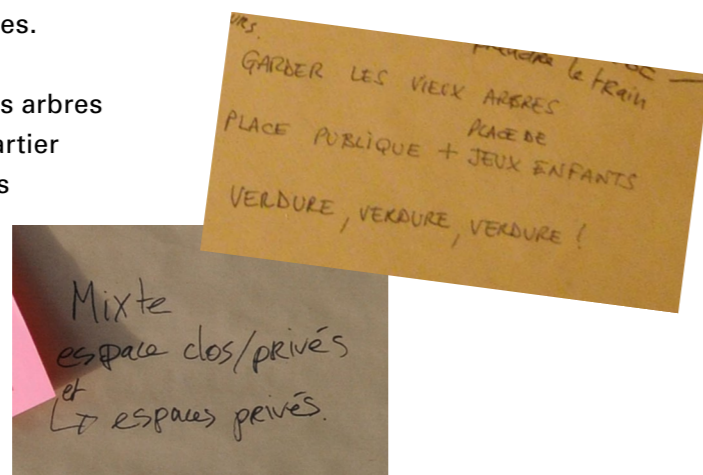 es.
s arbres
artier
s
URS.
prendre le train
GARDER LES VIEUX ARBRES
PLACE PUBLIQUE + PLACE DE JEUX ENFANTS
VERDURE, VERDURE, VERDURE !
Mixte
espace clos/privés
et
↳ espaces privés.